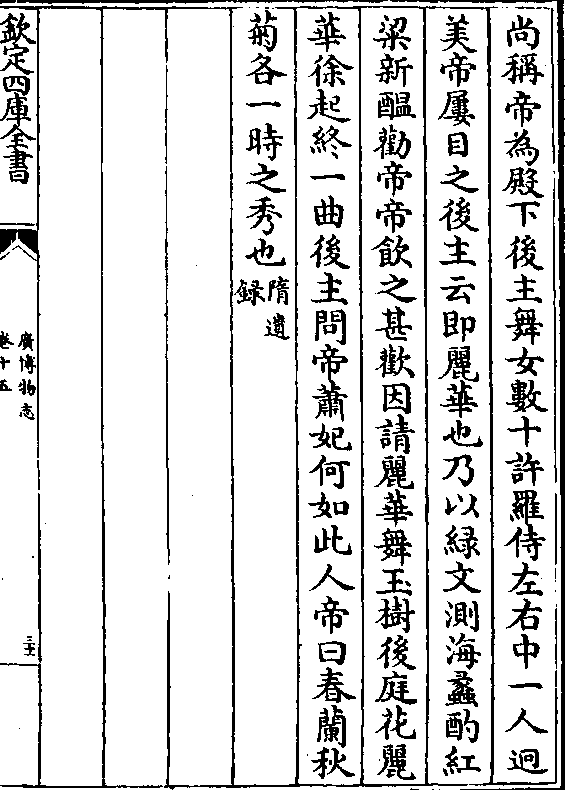 尚稱帝為殿下後主舞女數十許羅侍左右中一人迥
美帝屢目之後主云即麗華也乃以緑文測海蠡酌紅
粱新醖勸帝帝飲之甚歡因請麗華舞玉樹後庭花麗
華徐起終一曲後主問帝蕭妃何如此人帝曰春蘭秋
菊各一時之秀也隋遺
録
欽定四庫全書
廣博物志
卷十五